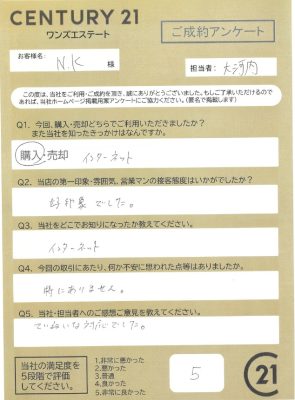 CENTURY 21
ワンズエステート
ご成約アンケート
お客様名:
N.K 様
担当者: 大河内
この度は、当社をご利用・ご成約を頂き、誠にありがとうございました。もしご了承いただけるので
あれば、当社ホームページ掲載用アンケートにご協力ください。(匿名で掲載します)
Q1. 今回、購入・売却どちらでご利用いただきましたか?
また当社を知ったきっかけはなんですか。
購入・売却 インターネット
Q2. 当店の第一印象・雰囲気、営業マンの接客態度はいかがでしたか?
好印象でした。
Q3. 当社をどこでお知りになったか教えてください。
インターネット
Q4. 今回の取引にあたり、何か不安に思われた点等はありましたか?
特にありません。
Q5. 当社・担当者へのご感想ご意見を教えてください。
ていねいな対応でした。
当社の満足度を
5段階で評価
してください。
1.非常に悪かった
2.悪かった
3.普通
4.良かった
5.非常に良かった
5
C21